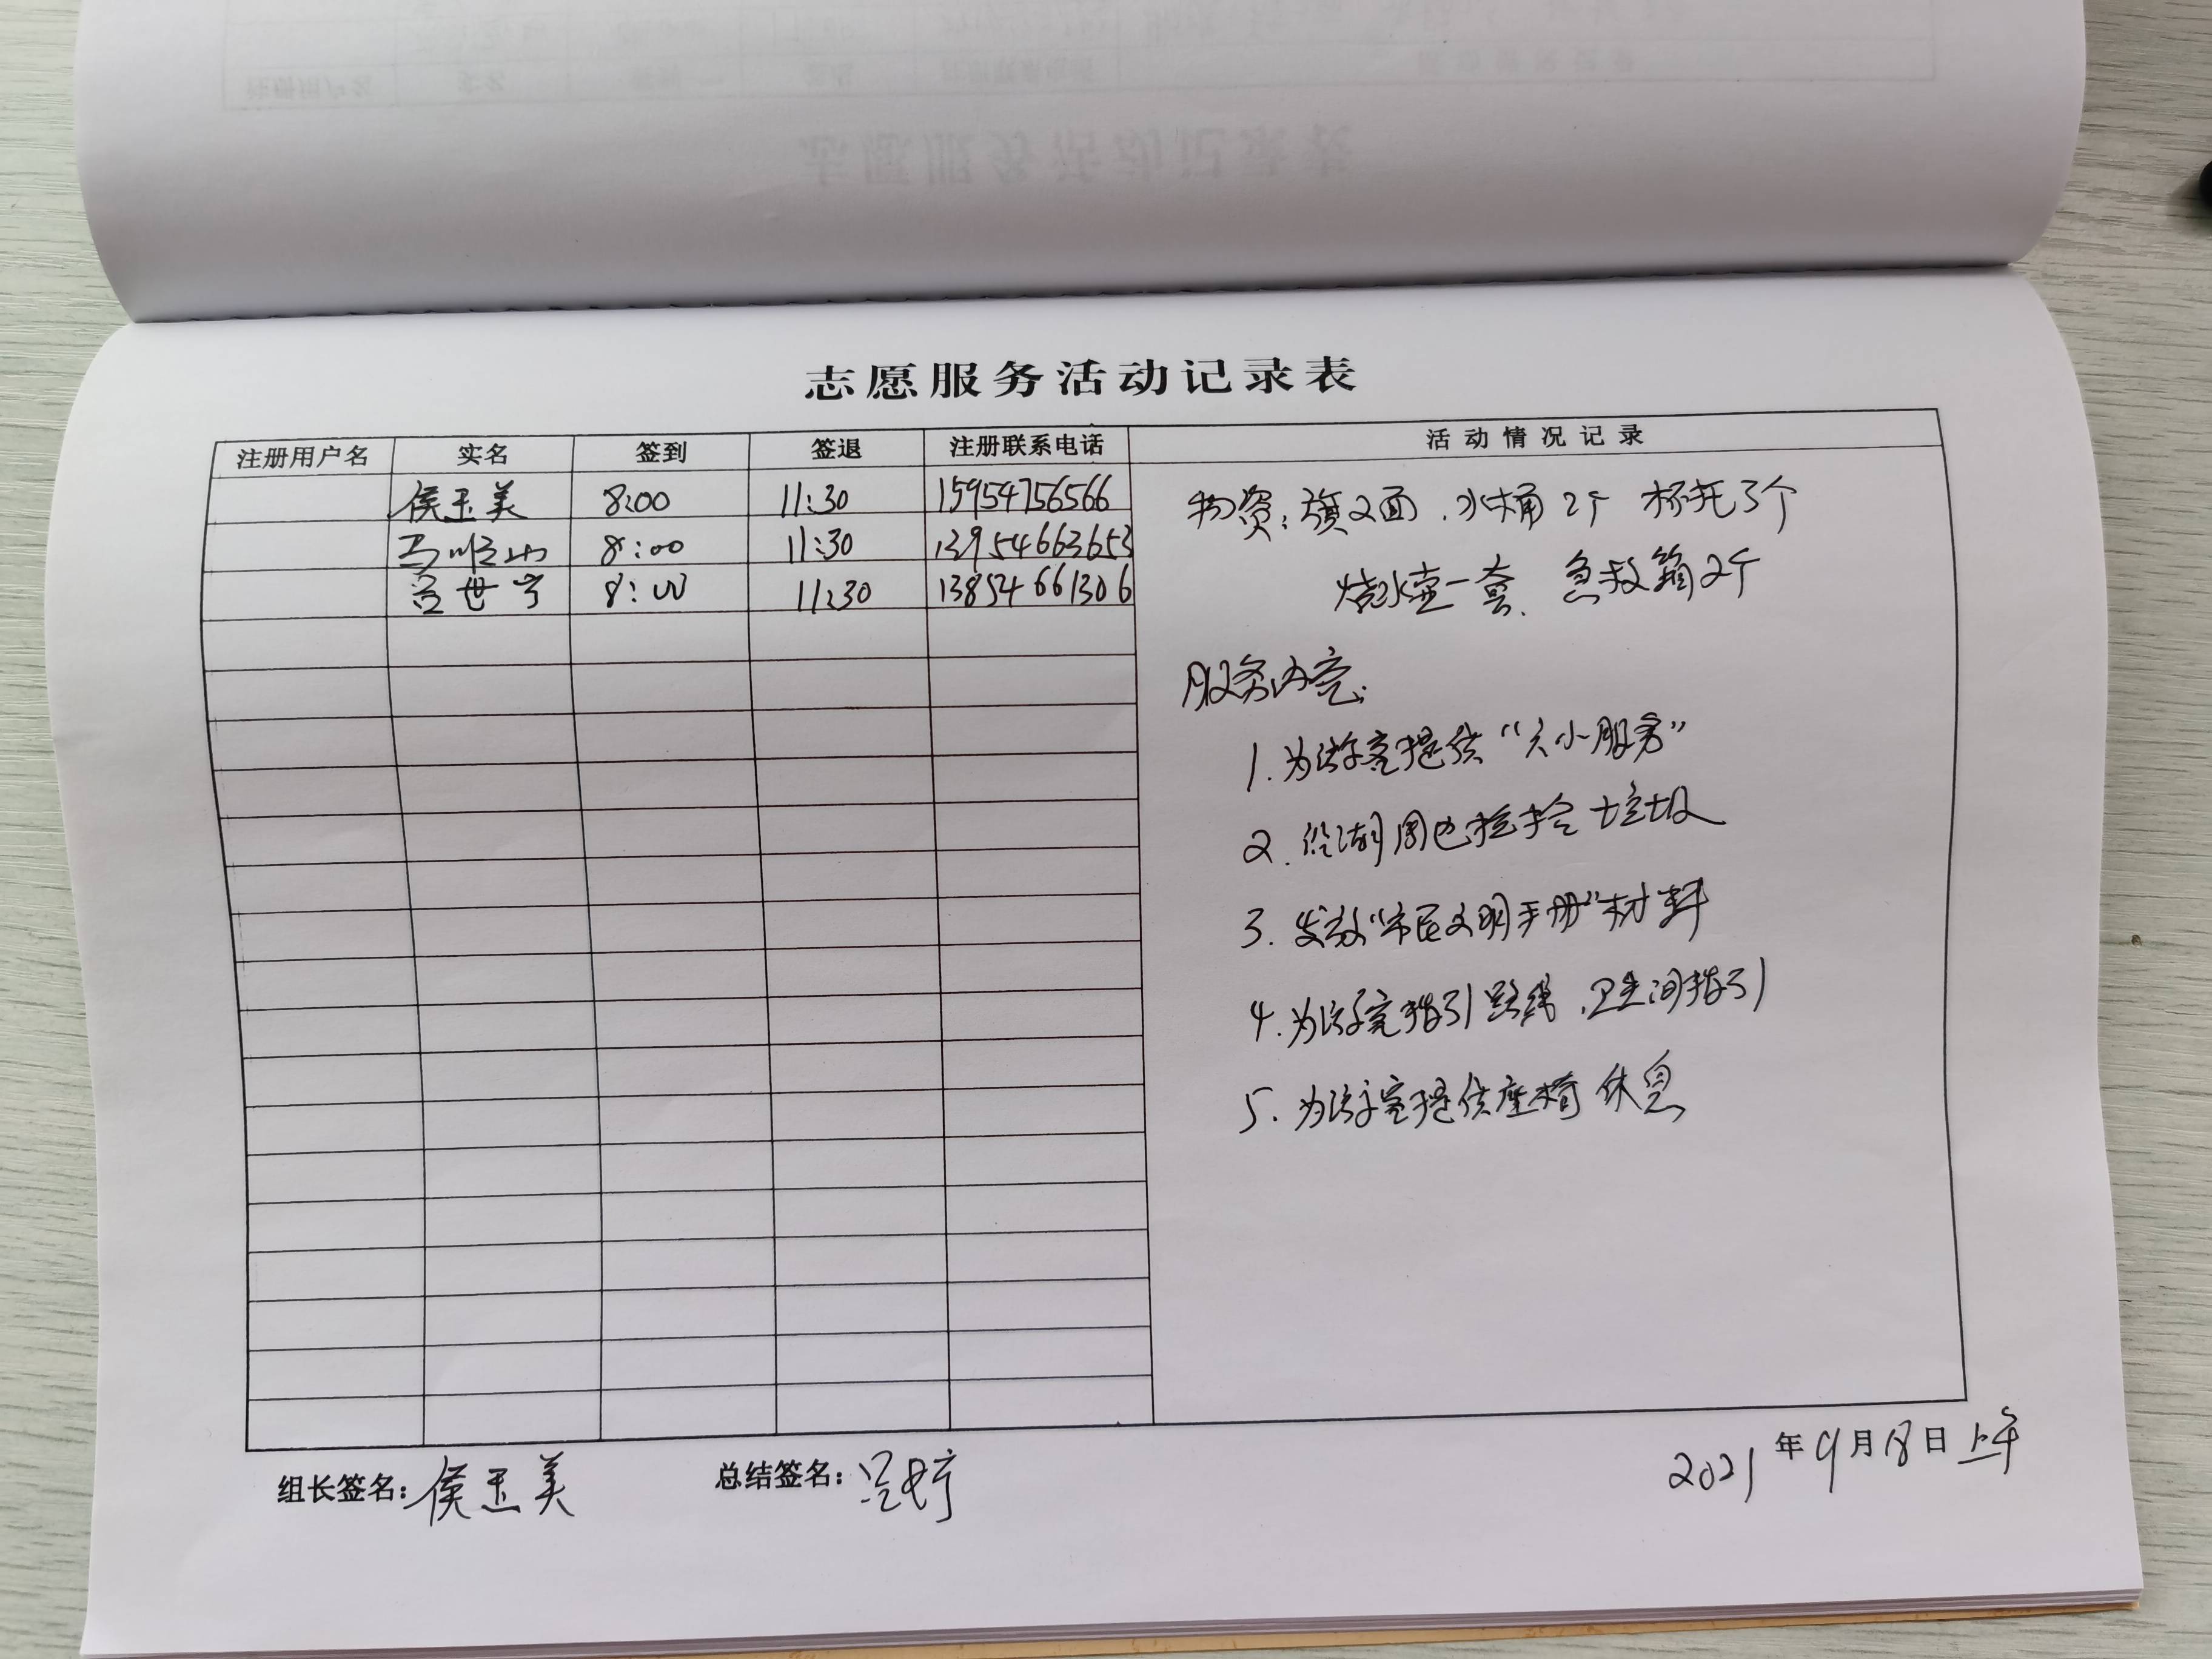 志愿服务活动记录表
注册用户名 实名 签到 签退 注册联系电话 活动情况记录
侯玉美 8:00 11:30 15954756566
马顺山 8:00 11:30 13954663653
世宁 8:00 11:30 13854661306
物资:旗2面、水桶2个 杯托3个
烧水壶一套、急救箱2个
服务内容:
1.为游客提供“六小服务”
2.沿湖周边捡拾垃圾
3.发放“市民文明手册”材料
4.为游客指引路线、卫生间指引
5.为游客提供座椅休息
组长签名:侯玉美 总结签名:
2021年9月18日上午